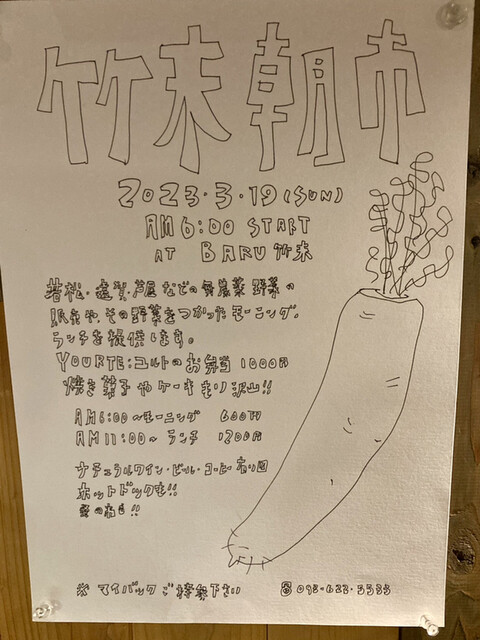 竹末朝市
2023.3.19(SUN)
AM6:00 START
AT BARU 竹末
若松・遠賀・芦屋などの無農薬野菜の
販売やその野菜をつかったモーニング、
ランチを提供します。
YOURTE:ユルトのお弁当 1000円
焼き菓子やケーキもり沢山!!
AM6:00~モーニング 600円
AM11:00~ランチ 1200円
ナチュラルワイン・ビール・コーヒー有り〼
ホットドックも!!
※マイバックご持参下さい